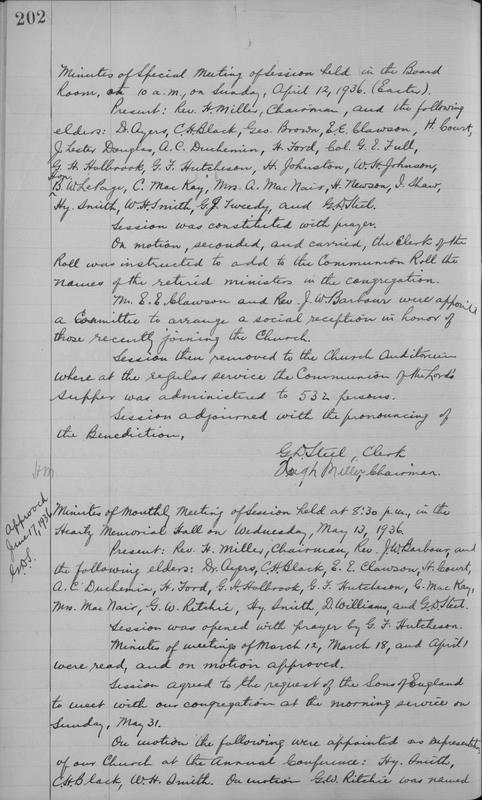 202
Minutes of Special Meeting of Session held in the Board
Room, at 10 a.m., on Sunday, April 12, 1936. (Easter).
Present: Rev. H. Miller, Chairman, and the following
elders: Dr. Ayers, C.H. Black, Geo. Brown, E.E. Clawson, H. Court,
J. Lester Douglas, A.C. Duchemin, H. Ford, Col. G.E. Full,
G.H. Holbrook, G.F. Hutcheson, H. Johnston, W.H. Johnson,
Hon. B.W. LePage, C. MacKay, Mrs. A. MacNair, H. Newson, I. Shaw,
Hy. Smith, W.H. Smith, G.J. Tweedy, and G.D. Steel.
Session was constituted with prayer.
On motion, seconded, and carried, the Clerk of the
Roll was instructed to add to the Communion Roll the
names of the retired ministers in the congregation.
Mr. E.E. Clawson and Rev. J.W. Barbour were appointed
a Committee to arrange a social reception in honor of
those recently joining the Church.
Session then removed to the Church Auditorium
where at the regular service the Communion of the Lord's
Supper was administered to 532 persons.
Session adjourned with the pronouncing of
the Benediction.
G.D. Steel, Clerk
Hugh Miller, Chairman.
H.M.
Approved
June 17, 1936
G.D.S.
Minutes of Monthly Meeting of Session held at 8:30 p.m., in the
Heartz Memorial Hall on Wednesday, May 13, 1936.
Present: Rev. H. Miller, Chairman, Rev. J.W. Barbour, and
the following elders: Dr. Ayers, C.H. Black, E.E. Clawson, H. Court,
A.C. Duchemin, H. Ford, G.H. Holbrook, G.F. Hutcheson, C. MacKay,
Mrs. MacNair, G.W. Ritchie, Hy. Smith, D. Williams, and G.D. Steel.
Session was opened with prayer by G.F. Hutcheson.
Minutes of meetings of March 12, March 18, and April 1
were read, and on motion approved.
Session agreed to the request of the Sons of England
to meet with our congregation at the morning service on
Sunday, May 31.
On motion the following were appointed as representatives
of our Church at the Annual Conference: Hy. Smith,
C.H. Black, W.H. Smith. On motion G.W. Ritchie was named